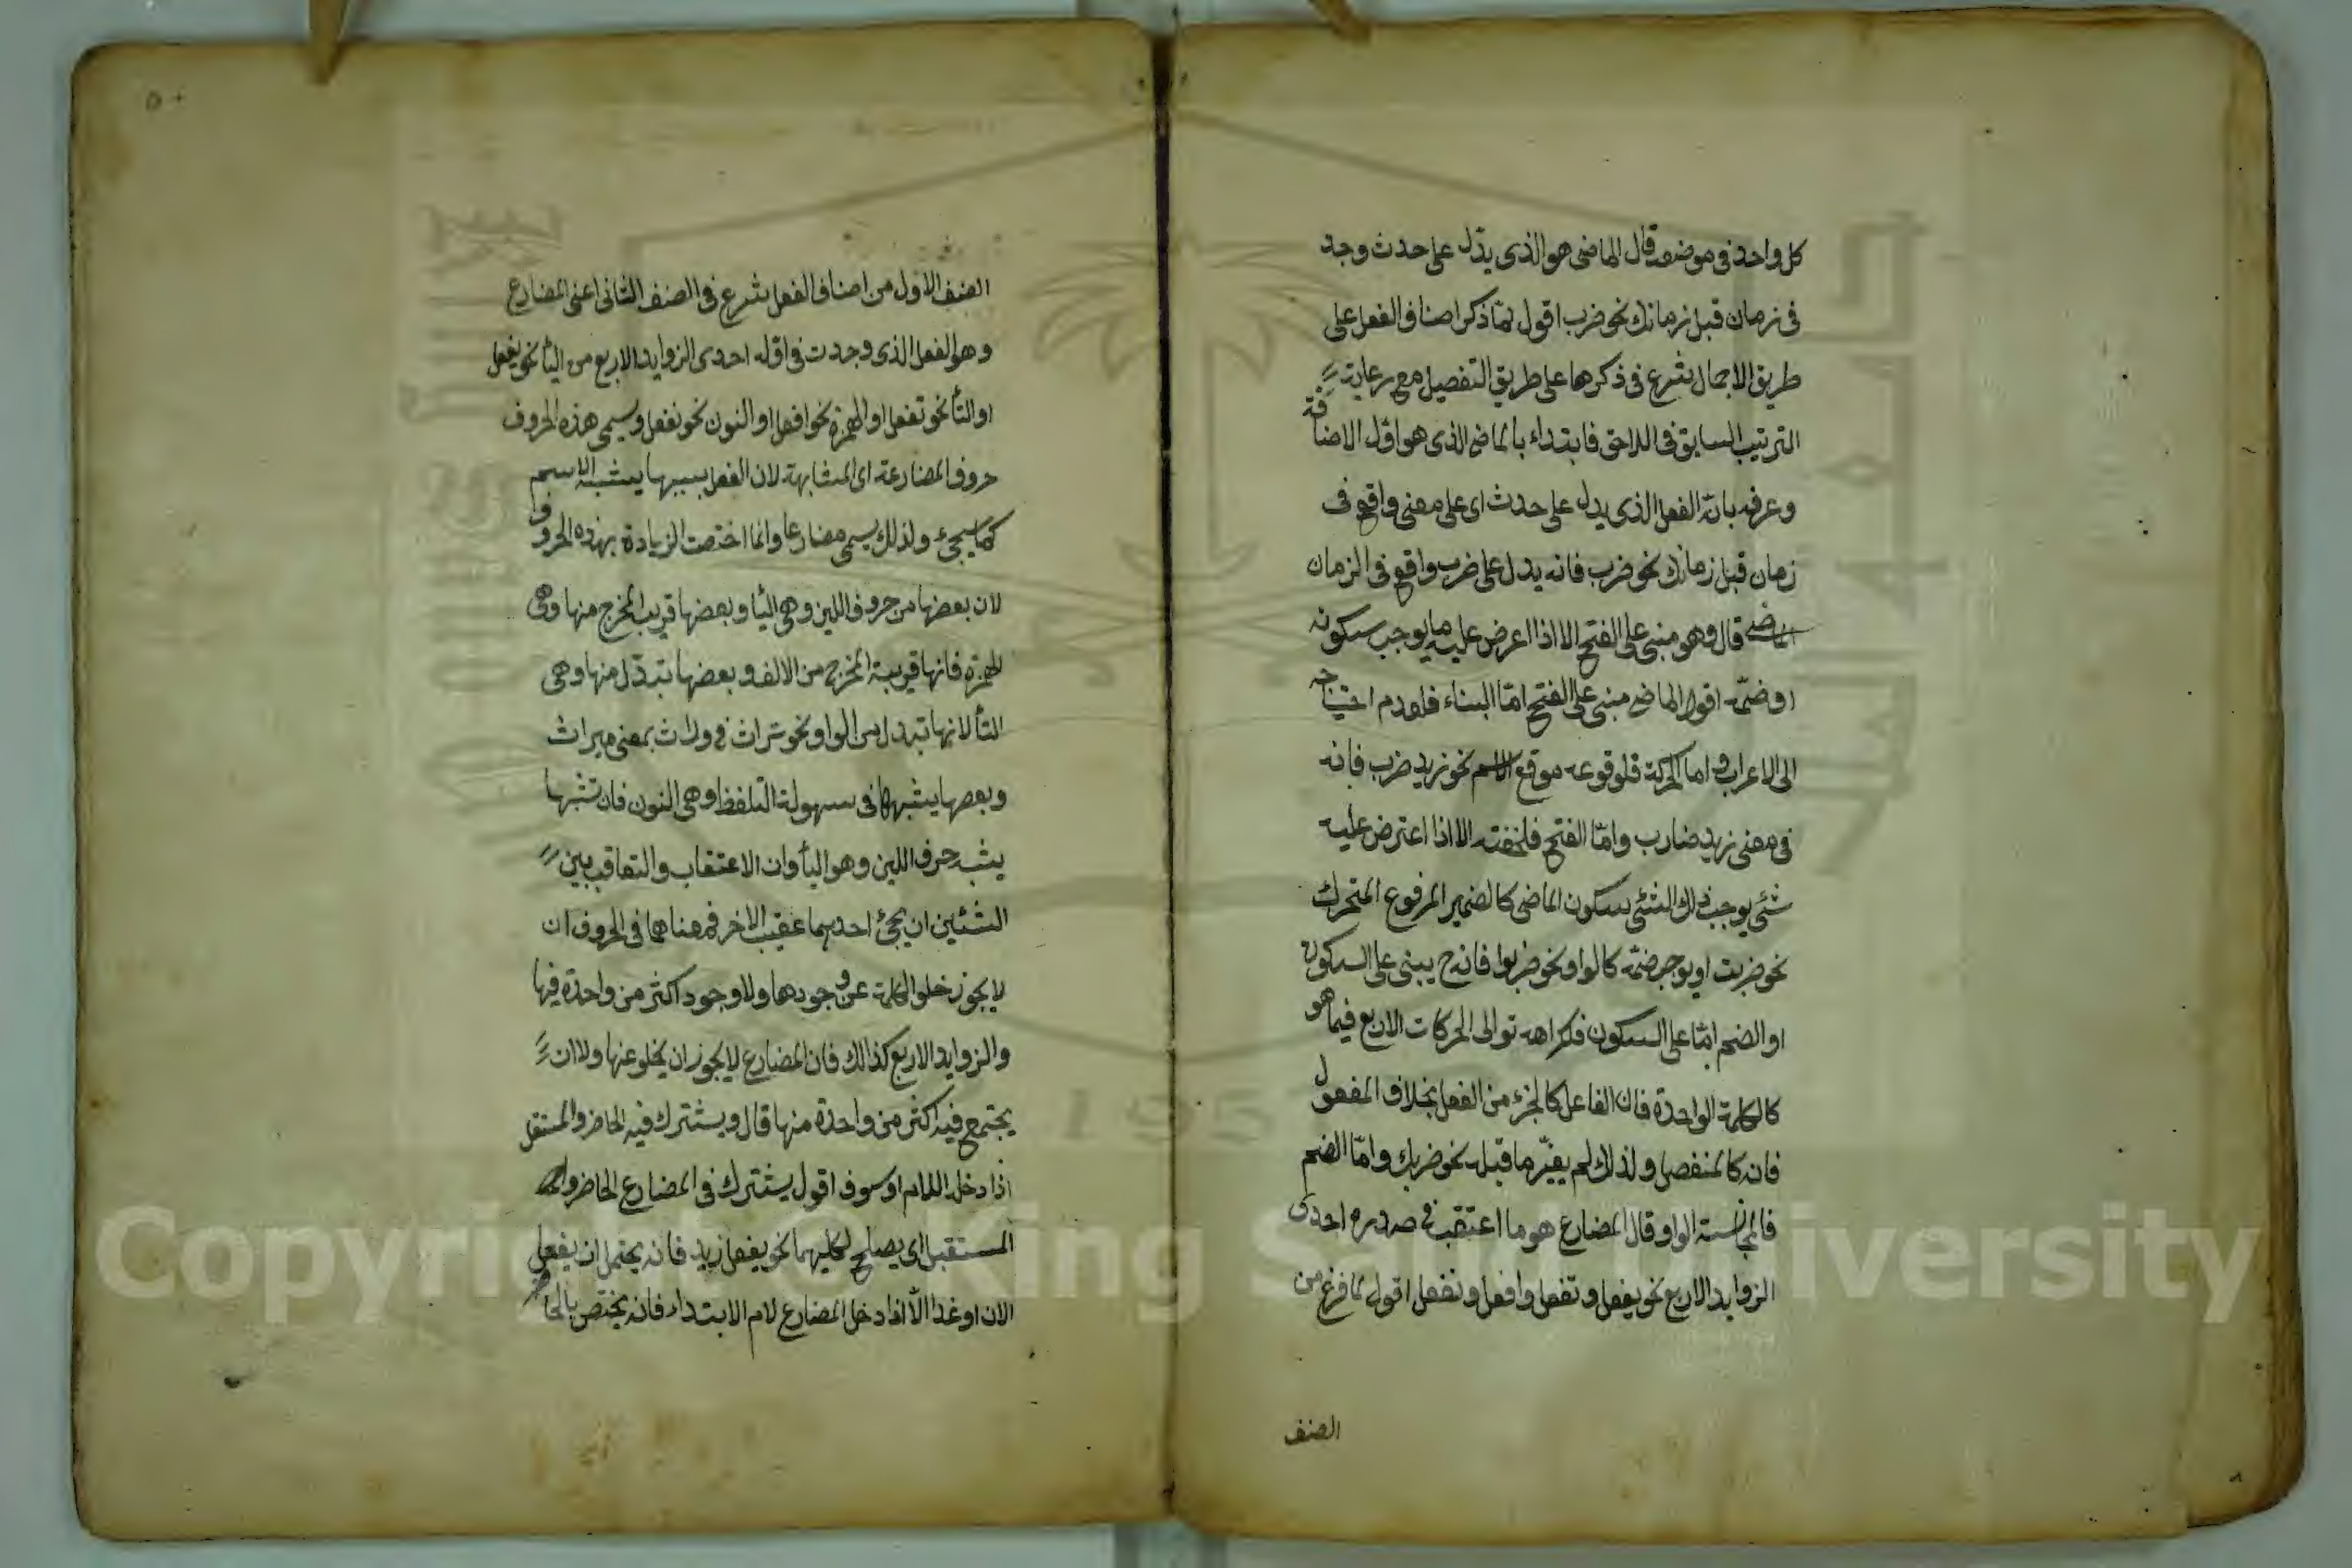 كل واحد فى موضعه قال الماضى هو الذى يدّل على حدث وجد
فى زمان قبل زمانك نحو ضرب اقول لمّا ذكر اصناف الفعل على
طريق الاجمال شرع فى ذكرها على طريق التفصيل مع رعاية
الترتيب السابق فى اللاحق فابتداء بالماضى الذى هو اوّل الاضافة
وعرفه بانّه الفعل الذى يدل على حدث اى على معنى واقع فى
زمان قبل زمانك نحو ضرب فانه يدل على ضرب واقع فى الزمان
الماضى قال وهو مبنى على الفتح الا اذا اعرض عليه ما يوجب سكونه
او ضمّه اقول الماضى مبنى على الفتح امّا البناء فلعدم احتياجه
الى الاعراب واما الحركة فلوقوعه موقع الاسم نحو زيد ضرب فانه
فى معنى زيد ضارب وامّا الفتح فلخفته الا اذا اعترض عليه
شئ يوجب ذلك الشئى سكون الماضى كالضمير المرفوع المتحرك
نحو ضربت او يوجب ضمّه كالواو نحو ضربوا فانه ح يبنى على السكون
او الضم امّا على السكون فلكراهه توالى الحركات الاربع فيما هو
كالكلمة الواحدة فان الفاعل كالجزء من الفعل بخلاف المفعول
فانه كالمنفصل ولذلك لم يغيّر ما قبله نحو ضربك وامّا الضم
فلمجانسته الواو قال المضارع هو ما اعتقب فى صدره احدى
الزوايد الاربع نحو يفعل وتفعل وافعل ونفعل اقول لما فرغ من
الصنف
٥٠
الصنف الاول من اصناف الفعل شرع فى الصنف الثانى اعنى المضارع
وهو الفعل الذى وجدت فى اوّله احدى الزوايد الاربع من اليأ نحو يفعل
او التأ نحو تفعل او الهمزة نحو افعل او النون نحو نفعل وسيمى هذه الحروف
حروف المضارعة اى المشابهة لان الفعل بسببها يشبه الاسم
كما سيجئ ولذلك يسمى مضارعا وانما اختصت الزيادة بهذه الحروف
لان بعضها من حروف اللين وهى اليأ وبعضها قريب المخرج منها وهى
الهمزة فانها قريبة المخرج من الالف وبعضها تبدّل منها وهى
التأ لانها تبدل من الواو نحو تراث فى وراث بمعنى ميراث
وبعضها يشبهها فى سهولة التلفظ وهى النون فان تشبها
يشبه حرف اللين وهو اليأ وان الاعتقاب والتعاقب بين
الشئين ان يجئ احدهما عقيب الاخر فمعناها فى الحروف ان
لا يجوز خلو الكلمة عن وجودها ولا وجود اكثر من واحدة فيها
والزوايد الاربع كذالك فان المضارع لا يجوز ان يخلو عنها ولا ان
يجتمع فيه اكثر من واحدة منها قال ويشترك فيه الحاضر والمستقبل
اذا دخله اللام او سوف اقول يشترك فى المضارع الحاضر و
المستقبل اى يصلح لكليهما نحو يفعل زيد فانه يحتمل ان يفعل
الان او غدا الّا اذا دخل المضارع لام الابتداء فانه يختص بالحاضر